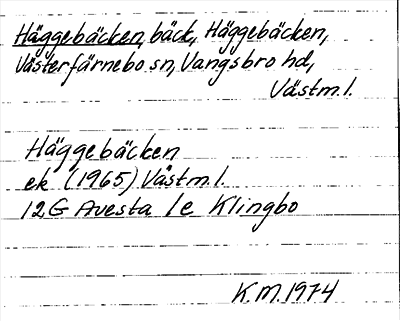 Häggebäcken, bäck, Häggebäcken,
Västerfärnebo sn, Vangsbro hd,
Västm.l.
Häggebäcken
ek (1965) Västm.l.
12G Avesta 1e Klingbo
K.M. 1974